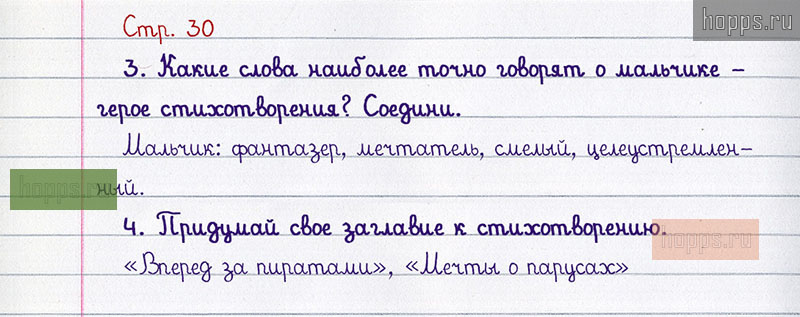 hopps.ru
Стр. 30
3. Какие слова наиболее точно говорят о мальчике –
герое стихотворения? Соедини.
Мальчик: фантазер, мечтатель, смелый, целеустремлен-
hopps.ru
ный.
4. Придумай свое заглавие к стихотворению.
hopps.ru
«Вперед за пиратами», «Мечты о парусах»